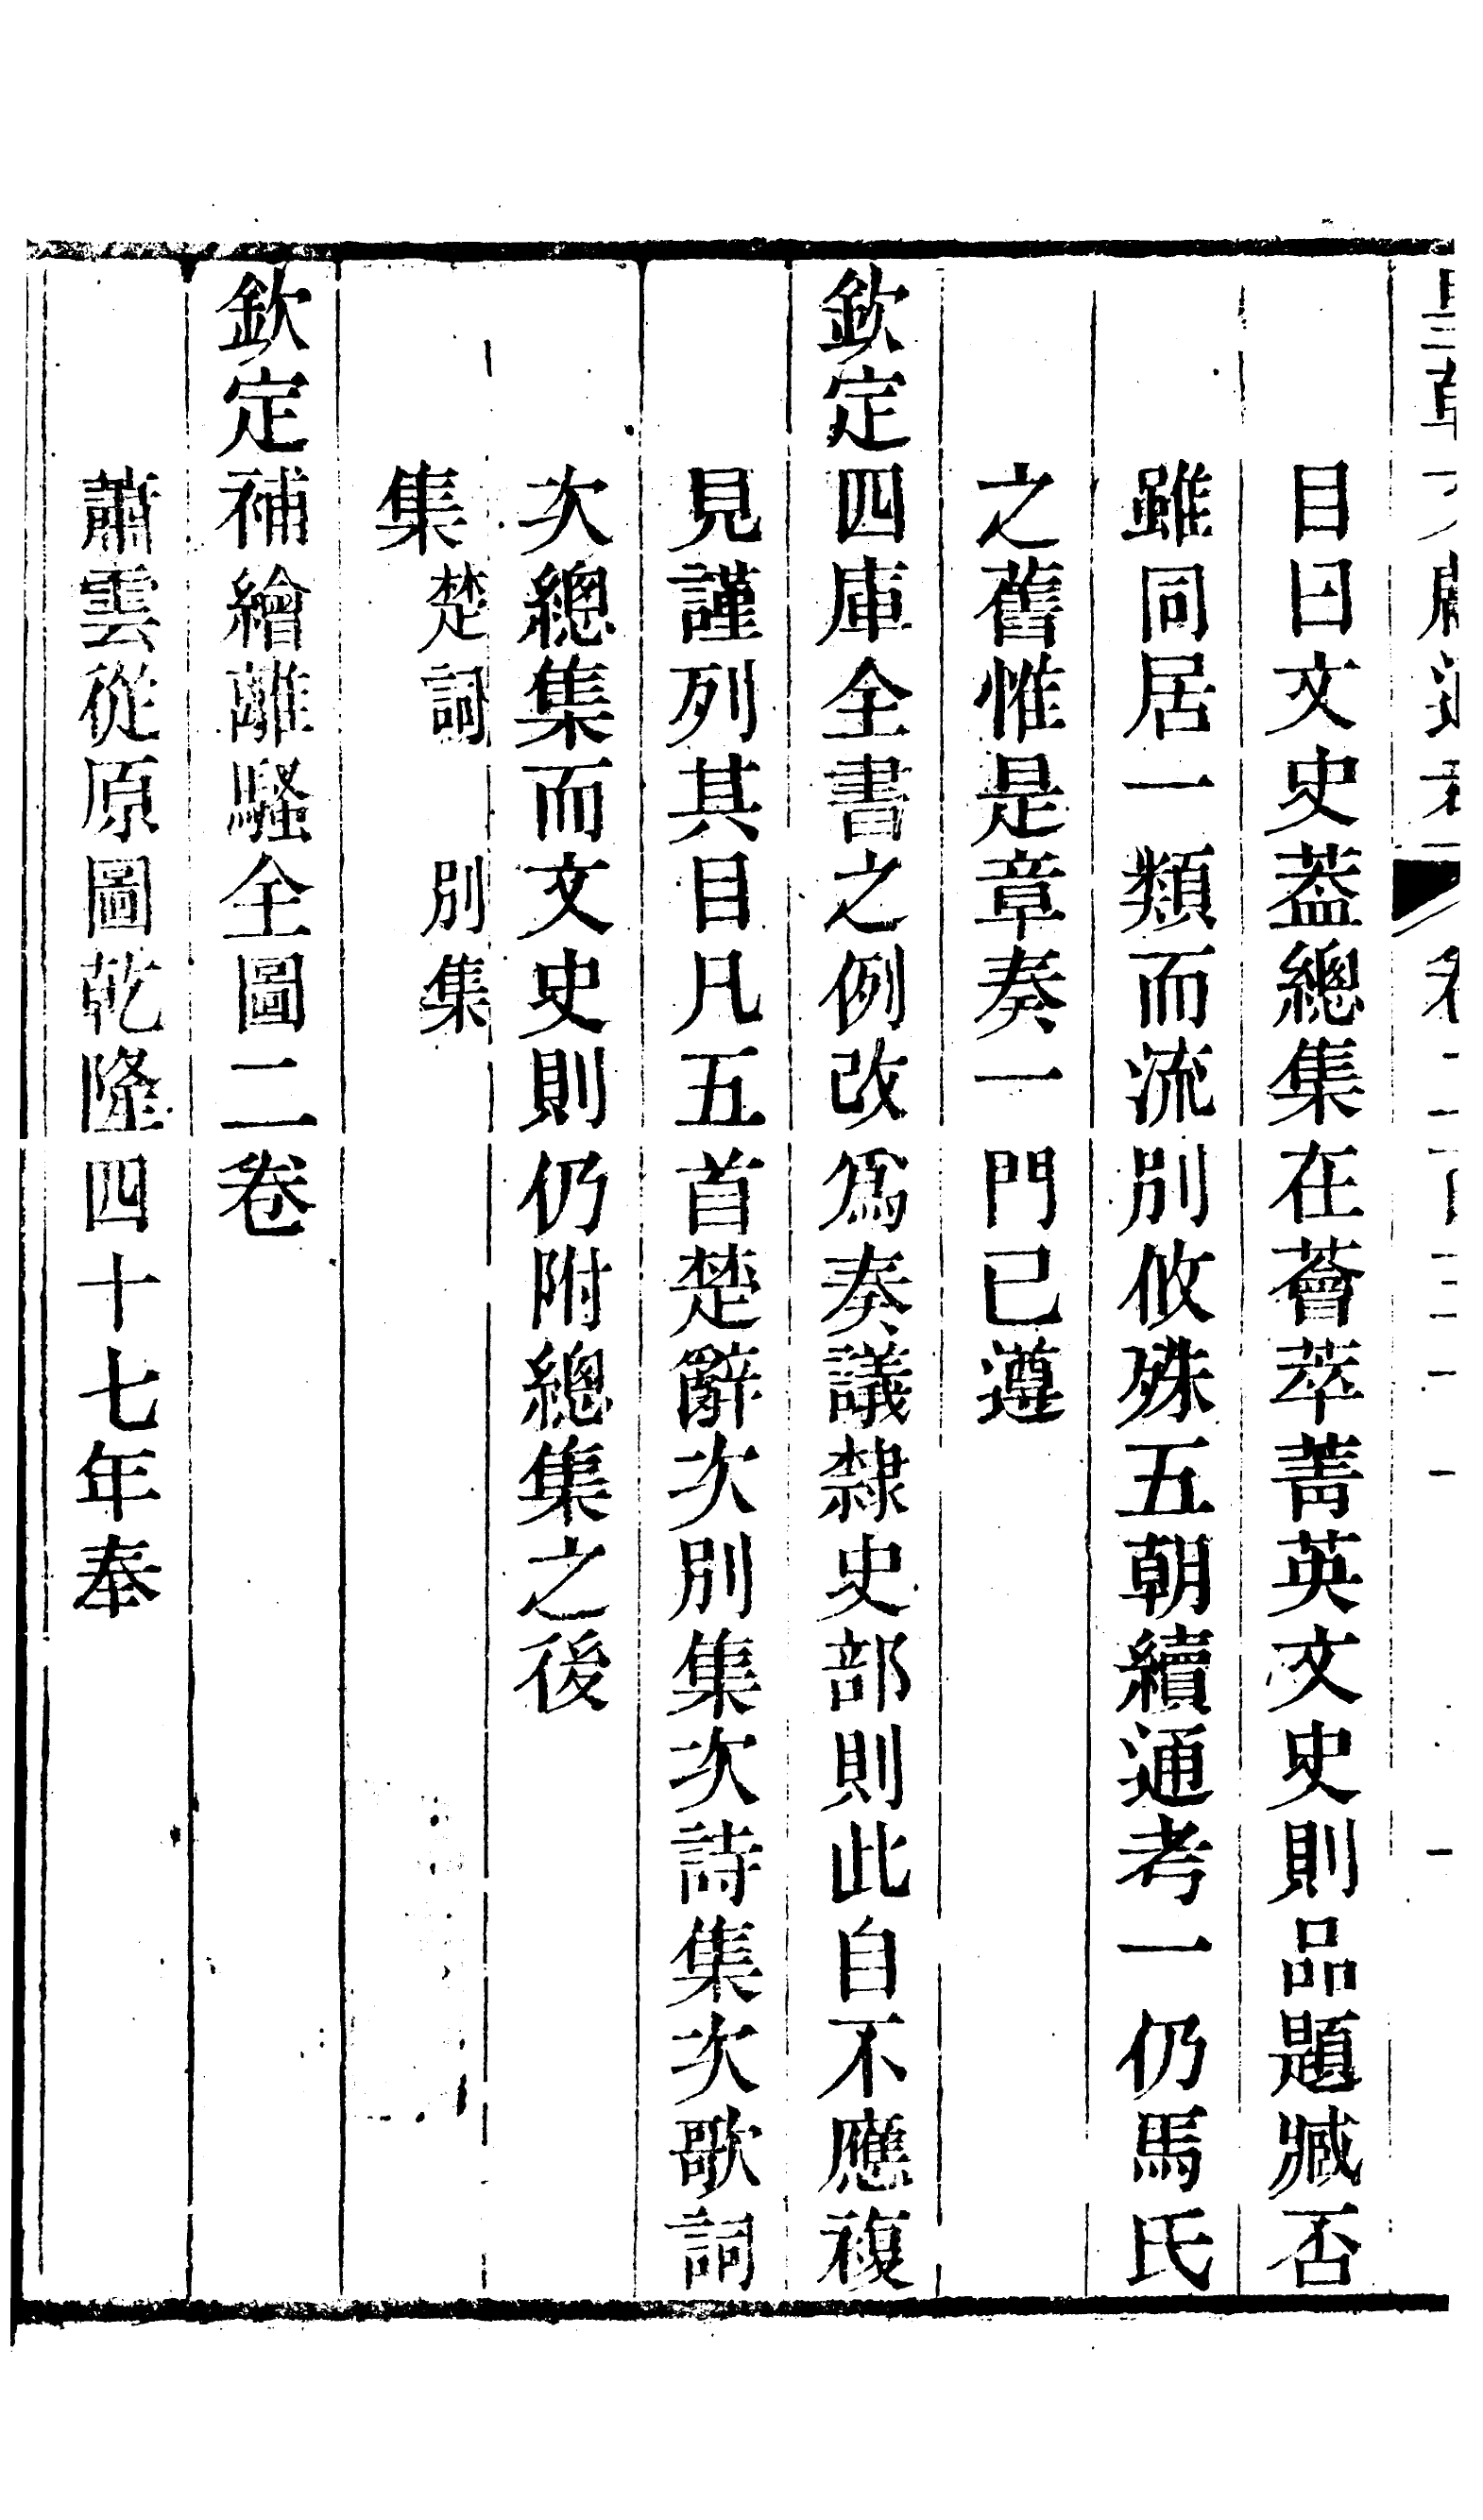 目曰文史葢總集在薈萃菁英文史則品題臧否
雖同居一類而流別攸殊五朝續通考一仍馬氏
之舊惟是章奏一門已遵
欽定四庫全書之例改爲奏議隸史部則此自不應複
見謹列其目凡五首楚辭次別集次詩集次歌詞
次總集而文史則仍附總集之後
集 楚詞 別集
欽定補繪離騷全圖二卷
蕭雲從原圖乾隆四十七年奉